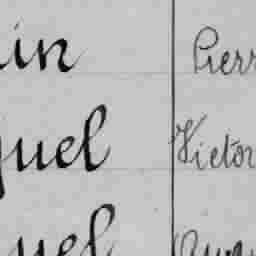 in Pierr
quel Victor
quel